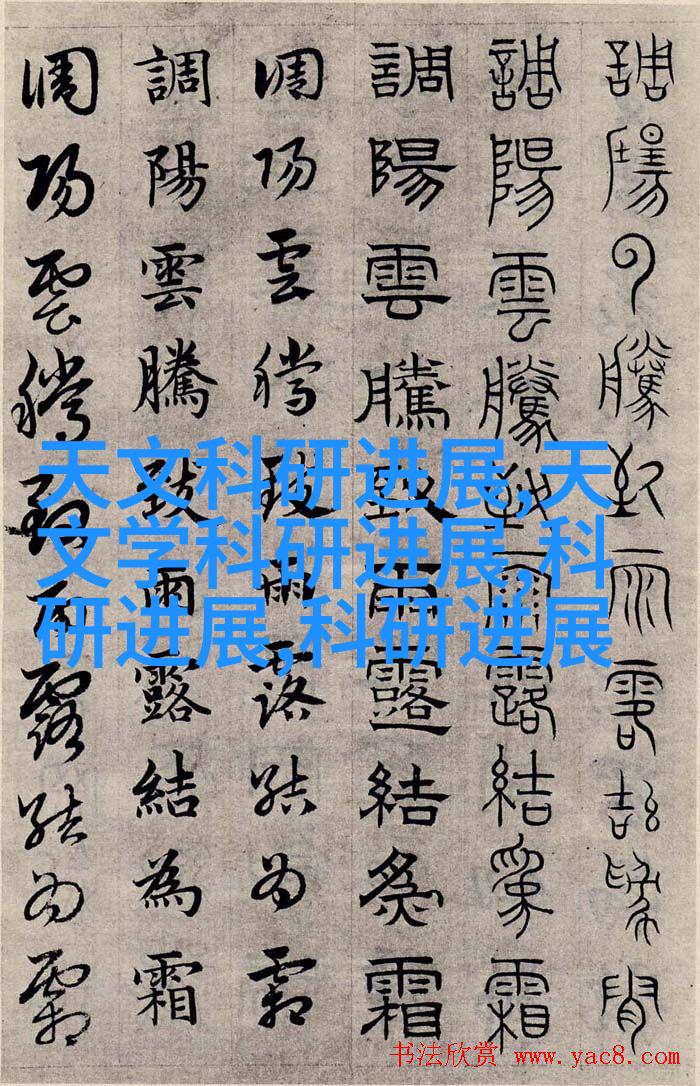 調陽雲騰致雨露結為霜
調陽雲騰致雨露結為霜
調陽雲騰致雨露結為霜
調陽雲騰致雨露結為霜
調陽雲騰致雨露結為霜
調陽雲騰致雨露結為霜
天文科研进展,天
文学科研进展,科
研进展,科研进展
书法欣赏 www.yac8.com